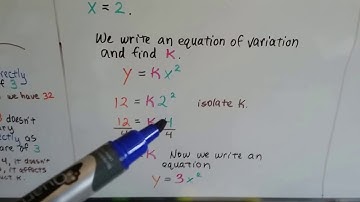 x = 2.
We write an equation of variation
and find K.
y = Kx²
12 = K2² isolate K.
12 = K4
4 4
K Now we write an
equation
y = 3x²
rectly
of 3
we have 32
doesn't
ary
rectly as
are of 3
y, it doesn't
, it affects